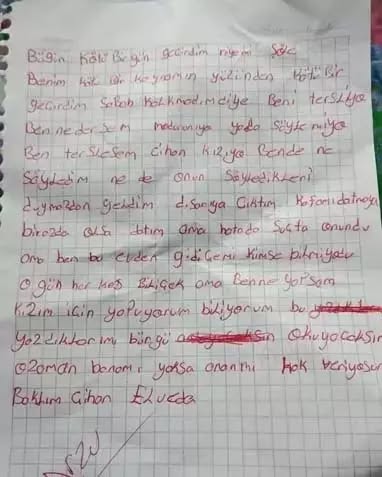 Bügün kötü Bir gün geçirdim niyemi Söle
Benim kök Bir kaynanın yüzinden kötü Bir
geçirdim Sabah kalkmadım diye Beni tersliye
Ben ne dersem yada Söylemiye
Ben terslesem cihan kızıya Bende ne
Söyledim ne de onun Söyledikleni
duymazdan geldim dışarıya Çıktım kafamı datmaya
birazda olsa datım ama hatada Suçta onundu
ama ben bu evden gidiçemi kimse bilmiyodu
o gün her kes Biliçek ama Benne yapsam
kızım için yapıyorum biliyorum bu
yazdıklarımı bürgü Okuyacaksın
Ozaman banamı yoksa ananmi hak veriyosun
Baktım Cihan Elveda